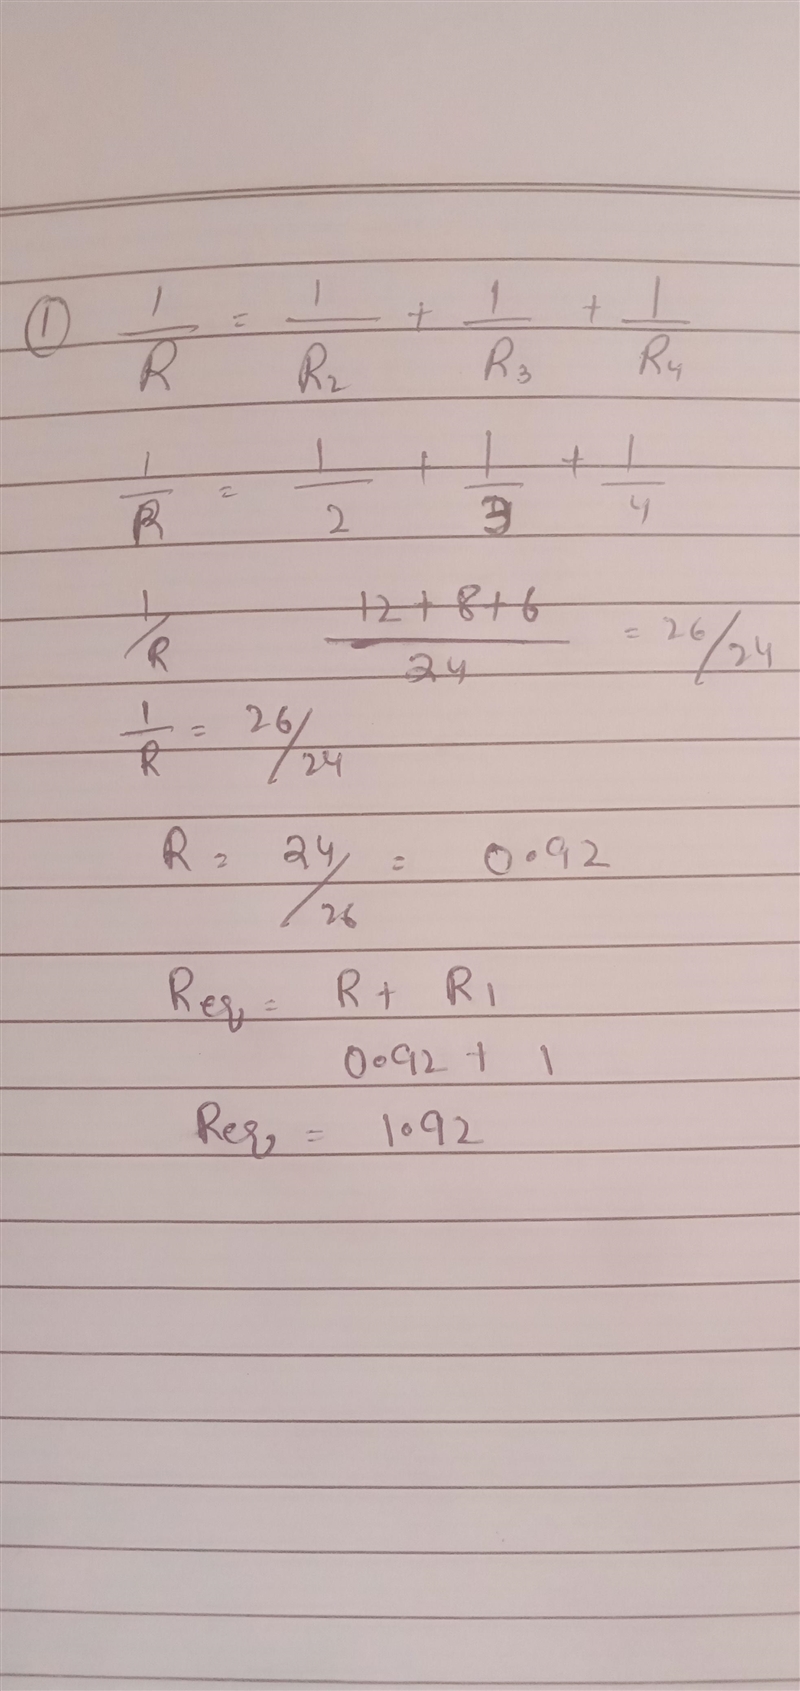 ① 1/R = 1/R₂ + 1/R₃ + 1/R₄
1/R = 1/2 + 1/3 + 1/4
1/R 12+8+6/24 = 26/24
1/R = 26/24
R = 24/26 = 0.92
Req = R + R1
0.92 + 1
Req = 1.92